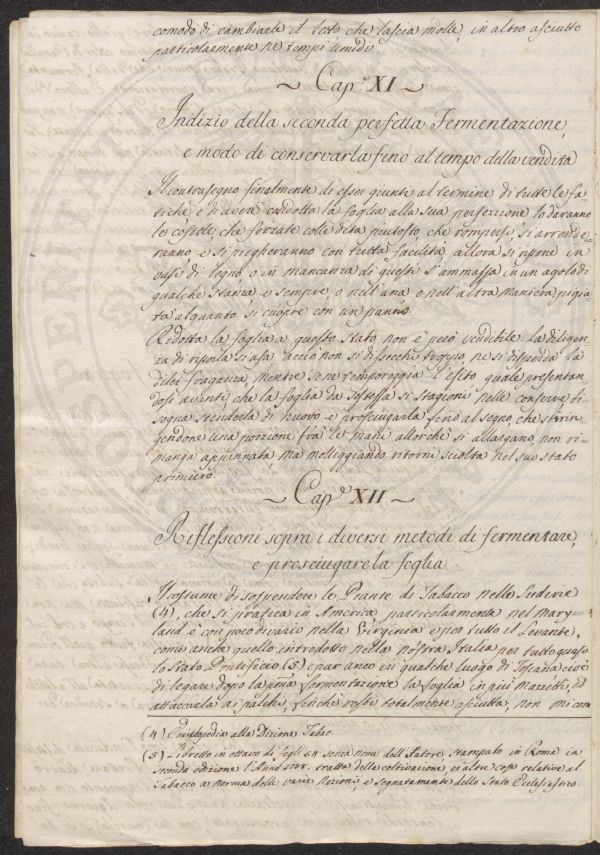 comodo di cambiarle il letto che lascia molle, in altro asciutto
particolarmente ne tempi umidi.
~ Cap.º XI ~
Indizio della seconda perfetta Fermentazione,
e modo di conservarla fino al tempo della vendita
Il contrasegno finalmente di esser giunti al termine di tutte le fa=
tiche e di avere condotta la foglia alla sua perfezione lo daranno
le costole, che forzate colle dita piutosto che rompersi, si arrende=
ranno e si piegheranno con tutta facilità, allora si ripone in
casse di legno, o in mancanza di queste s'ammassa in un agolo di
qualche stanza e sempre, o nell'una o nell'altra maniera pigia=
ta alquanto si cuopre con un panno.
Ridotta la foglia a questo stato non è però vendibile. La diligen=
za di riporla si usa acciò non si dissecchi troppo ne si disperda la
di lei fraganza, mentre se ne temporeggia l'esito quale presentan
dosi avanti, che la foglia da se stessa si stagioni nelle conserve bi=
sogna stenderla di nuovo e prosciugarla fino al segno, che strin=
gendone una porzione fra le mani allorchè si allargano, non ri=
manga appannata, ma molleggiando ritorni sciolta nel suo stato
primiero.
~ Cap.º XII ~
Riflessioni sopra i diversi metodi di fermentare,
e prosciugare la foglia
Il costume di sospendere le Piante di Tabacco nelle Suderie
(4), che si pratica in America particolarmente nel Mary=
land e con poco divario nella Virginea e per tutto il Levante,
come anche quello introdotto nella nostra Italia per tutto quasi
lo Stato Pontificio (5) e par anco in qualche luogo di Toscana cioè
di legare dopo la p.ma fermentazione la foglia in più Mazzetti, ed
attaccarla ai palchi, finchè resti totalmente asciutta, non mi com
(4) Enciclopedia alla Dizione Tabac.
(5) Libretto in ottavo di fogli 58 senza nome dell'Autore stampato in Roma in
seconda edizione l'Anno 1758. tratta della coltivazione ed altre cose relative al
Tabacco a norma delle varie Nazioni, e segnatamente dello Stato Ecclesiastico.